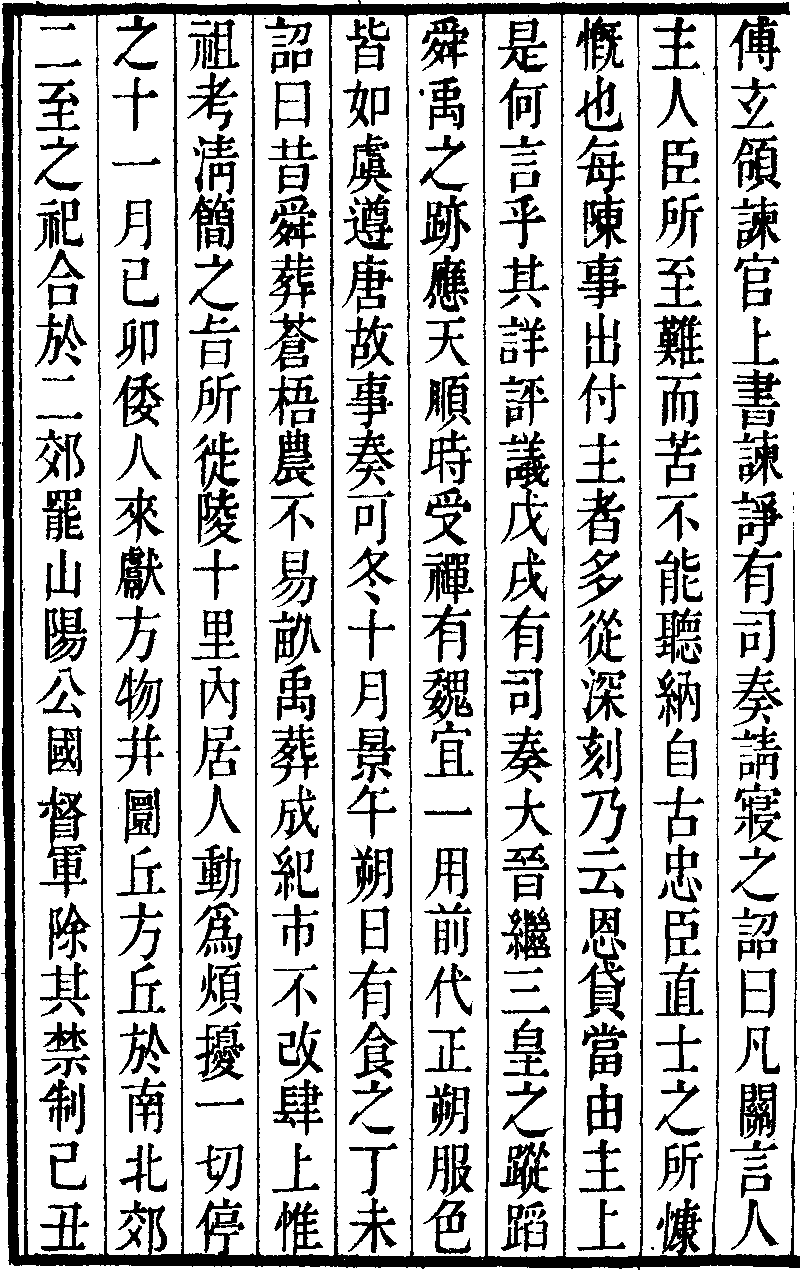 傅玄領諫官上書諫諍有司奏請寢之詔曰凡關言人
主人臣所至難而苦不能聽納自古忠臣直士之所慷
慨也每陳事出付主者多從深刻乃云恩貸當由主上
是何言乎其詳評議戊戌有司奏大晉繼三皇之蹤蹈
舜禹之跡應天順時受禪有魏宜一用前代正朔服色
皆如虞遵唐故事奏可冬十月景午朔日有食之丁未
詔曰昔舜葬蒼梧農不易畝禹葬成紀市不改肆上惟
祖考清簡之旨所徙陵十里內居人動爲煩擾一切停
之十一月己卯倭人來獻方物并圜丘方丘於南北郊
二至之祀合於二郊罷山陽公國督軍除其禁制己丑